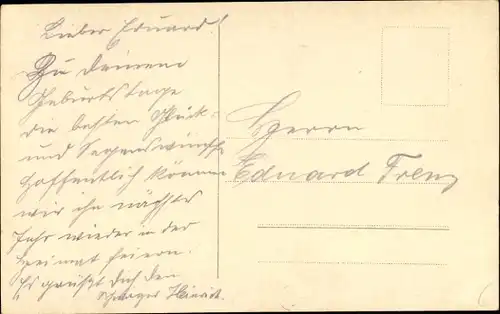 Lieber Eduard!
Zu Deinem
Geburtstage
die besten Glück-
und Segenswünsche
Hoffentlich können
wir ihn nächstes
Jahr wieder in der
Heimat feiern.
Es grüßt Dich Dein
Schwager Heinrich.
Herrn
Eduard Frenz